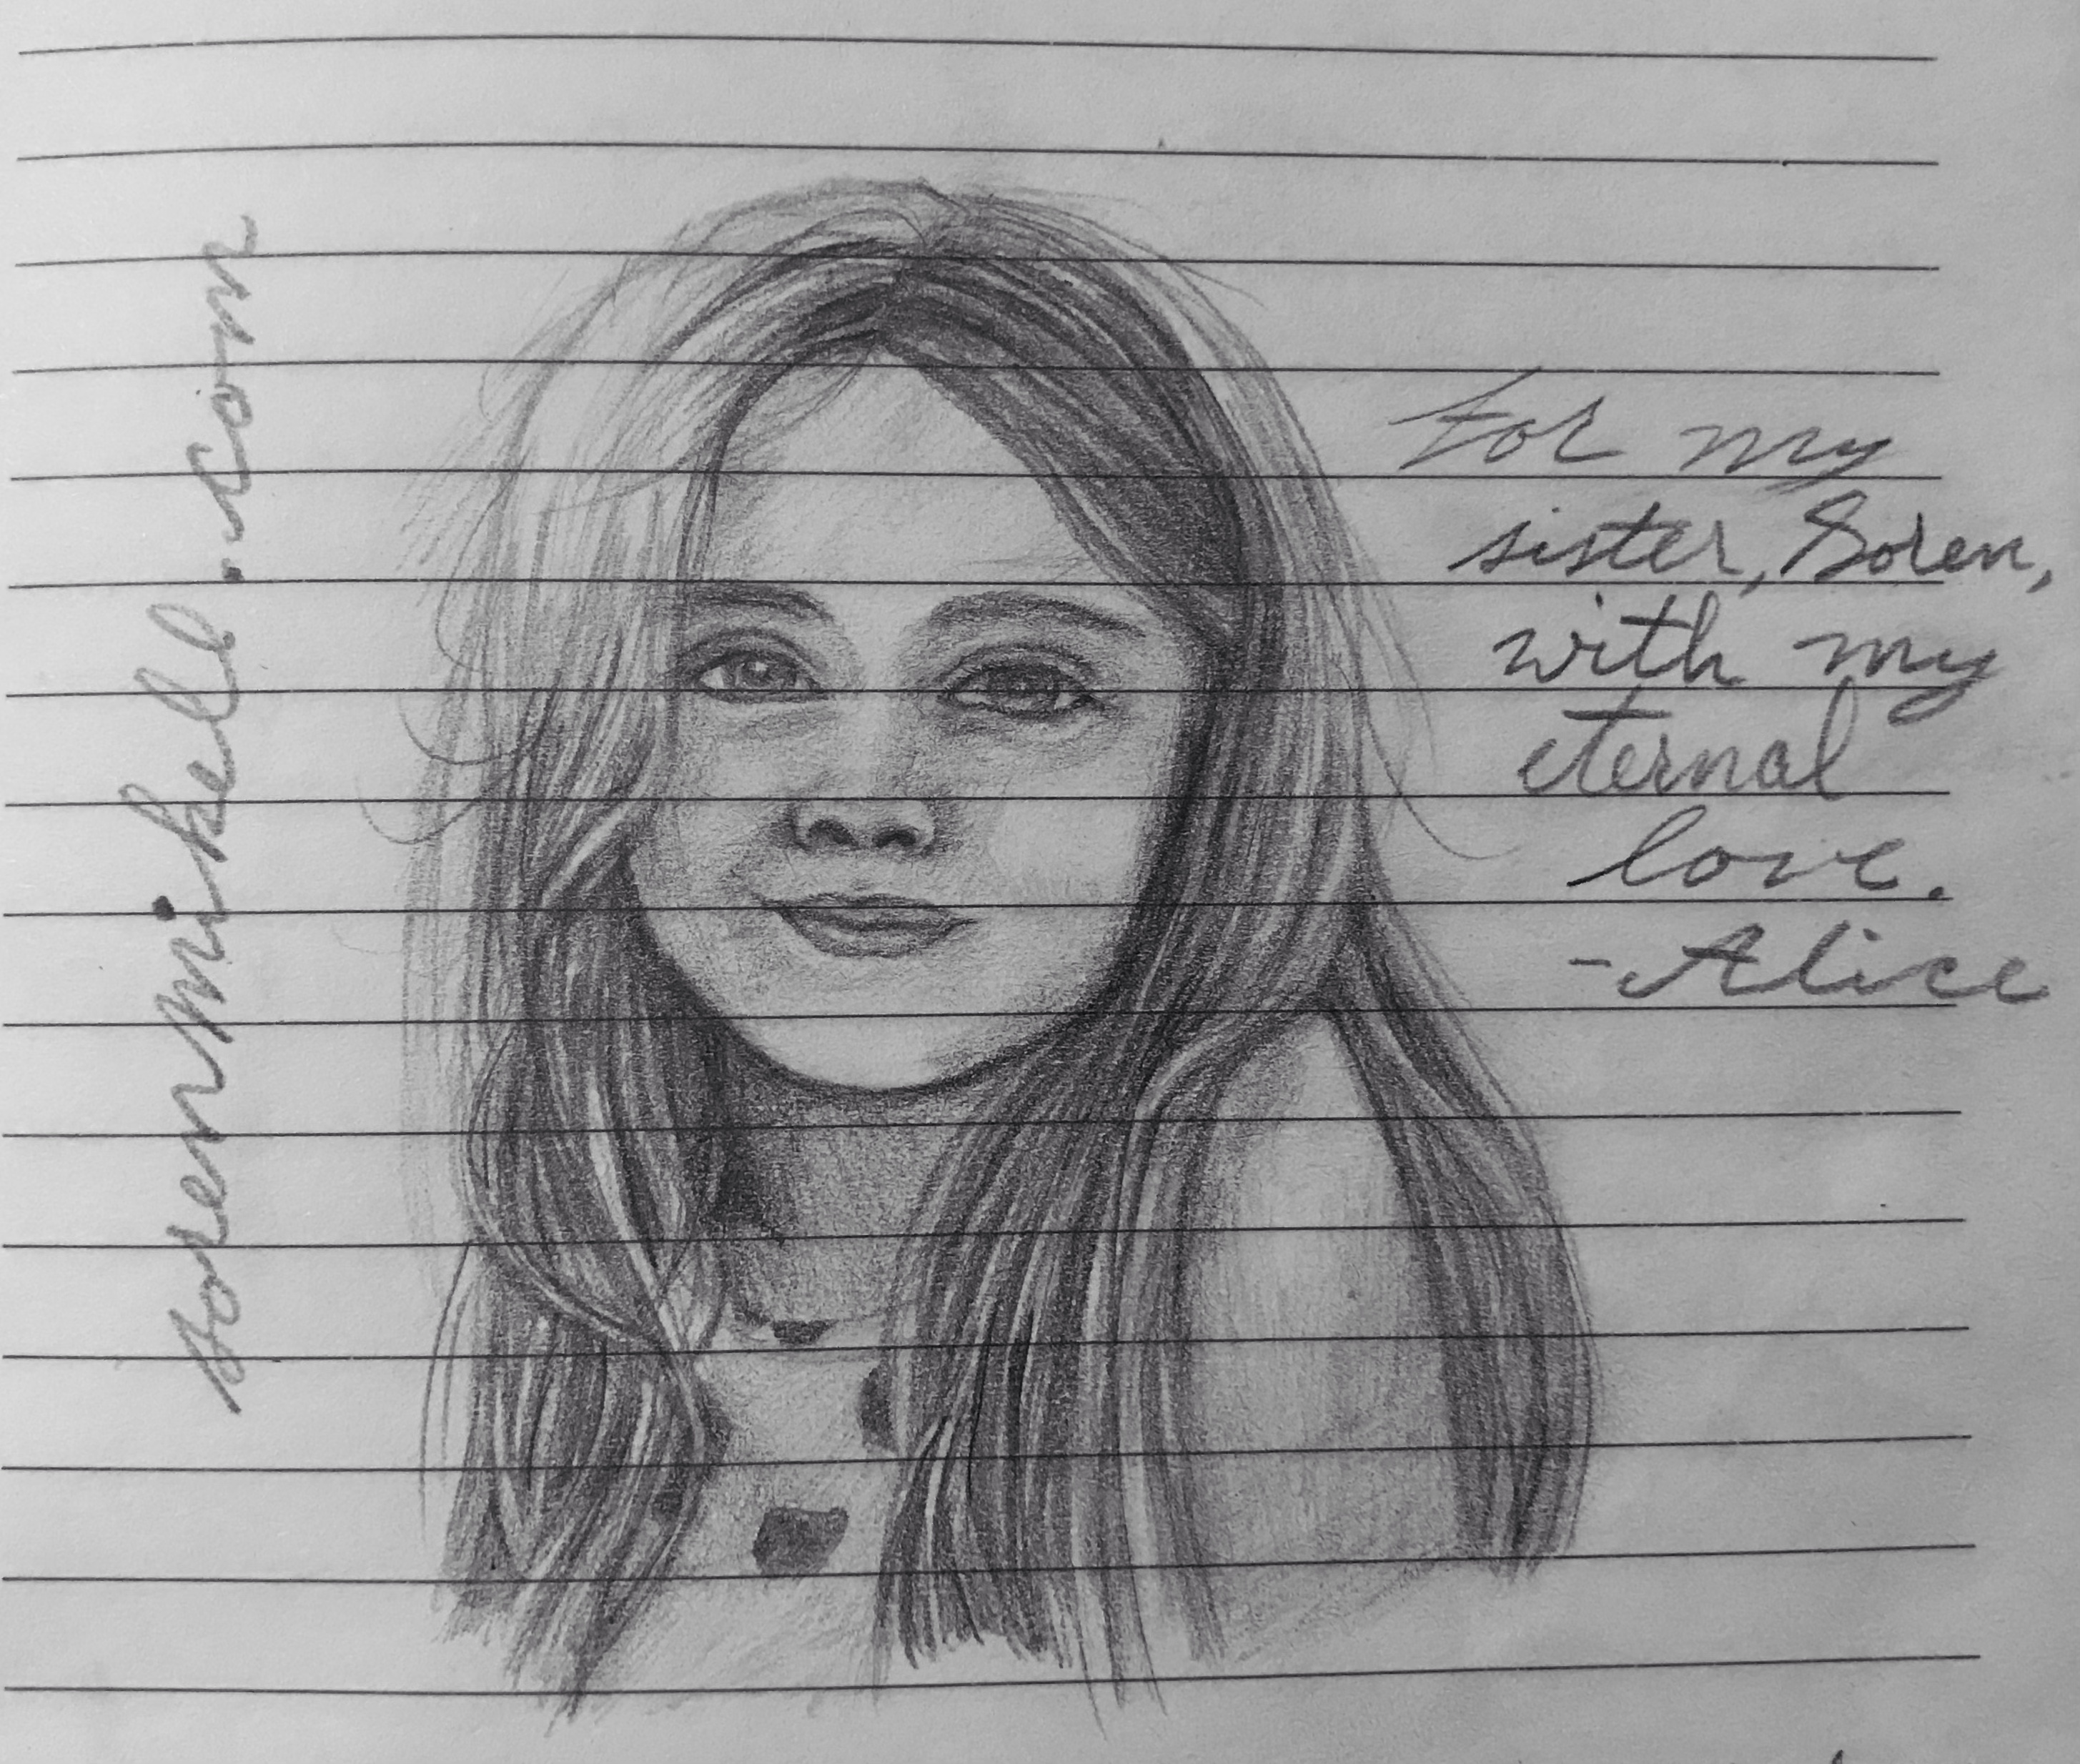 sorenmikell.com
For my
sister, Soren,
with my
eternal
love.
-Alice